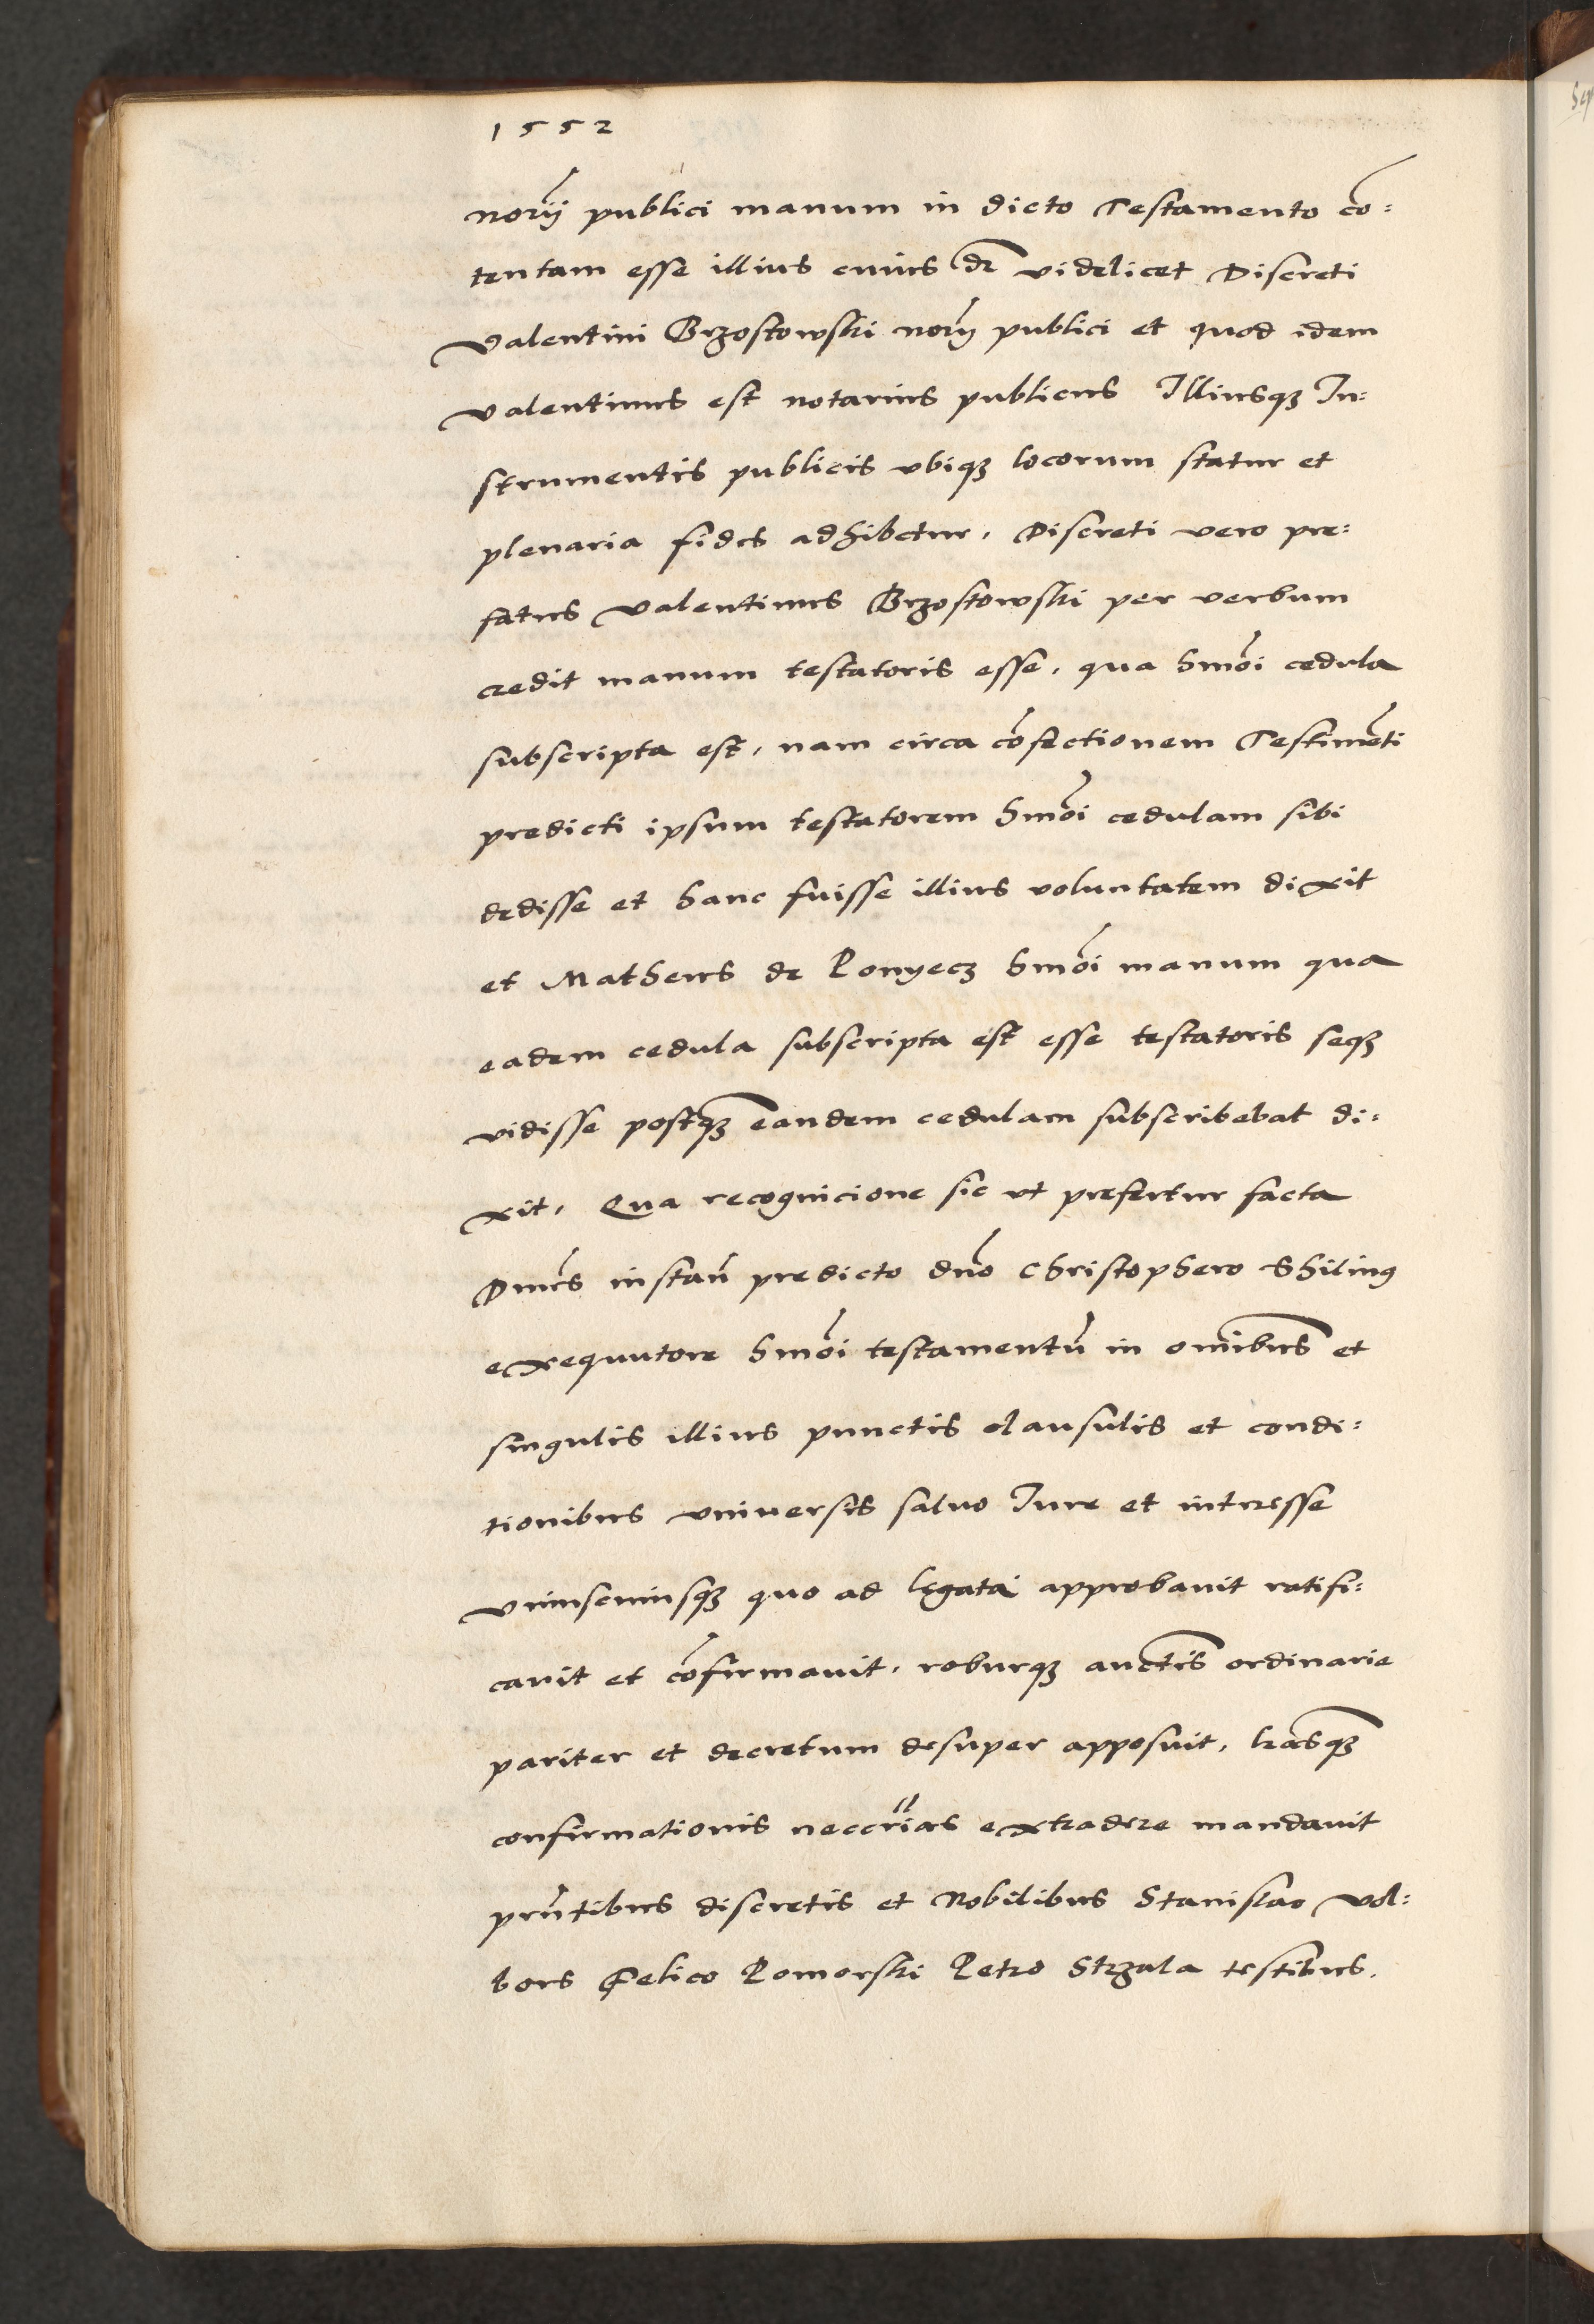 1552
norij publici manum in dicto Testamento co̅=
tentam esse illius cuius dr̅ videlicet Discreti
Valentini Brzostowski norij publici et quod idem
valentinus est notarius publicus Illiusqȝ In=
strumentis publicis vbiqȝ locorum statur et
plenaria fides adhibetur, Discreti vero pre=
fatus Valentinus Brzostowski per verbum
credit manum testatoris esse, qua hmo̅i cedula
subscripta est, nam circa co̅fectionem Testime̅ti
predicti ipsum testatorem hmo̅i cedulam sibi
dedisse et hanc fuisse illius voluntatem dixit
et Matheus de Ponyecz hmo̅i manum qua
eadem cedula subscripta est esse testatoris seqȝ
vidisse postqȝ eandem cedulam subscribebat di=
xit, Qua recognicione sic ut prefertur facta
Dn̅us instan̅ predicto dn̅o Christophero Shiling
exequutore hmo̅i testamentu̅ in om̅ibus et
singulis illius punctis clausulis et condi=
tionibus vniversis saluo Iure et interesse
vniuscuiusqȝ quo ad legata approbauit ratifi=
cauit et co̅firmauit, roburqȝ auctis̅ ordinarie
pariter et decretum desuper apposuit, lr̅asqȝ
confirmationis neccrias extradere mandauit
prn̅tibus discretis et Nobilibus Stanislao Vol=
bors Felico Pomorski Petro Strzala testibus.